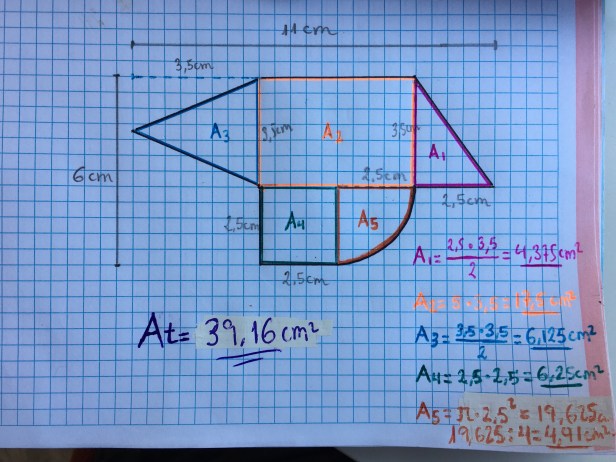 11cm
3,5cm
A3
3,5cm
A2
3,5cm
A1
6cm
2,5cm
2,5cm
2,5cm
A4
A5
2,5cm
A1= 2,5·3,5/2 = 4,375cm²
A2= 5·3,5= 17,5cm²
At= 39,16cm²
A3= 3,5·3,5/2 = 6,125cm²
A4= 2,5·2,5= 6,25cm²
A5= π·2,5²= 19,625c
19,625÷4= 4,91cm²